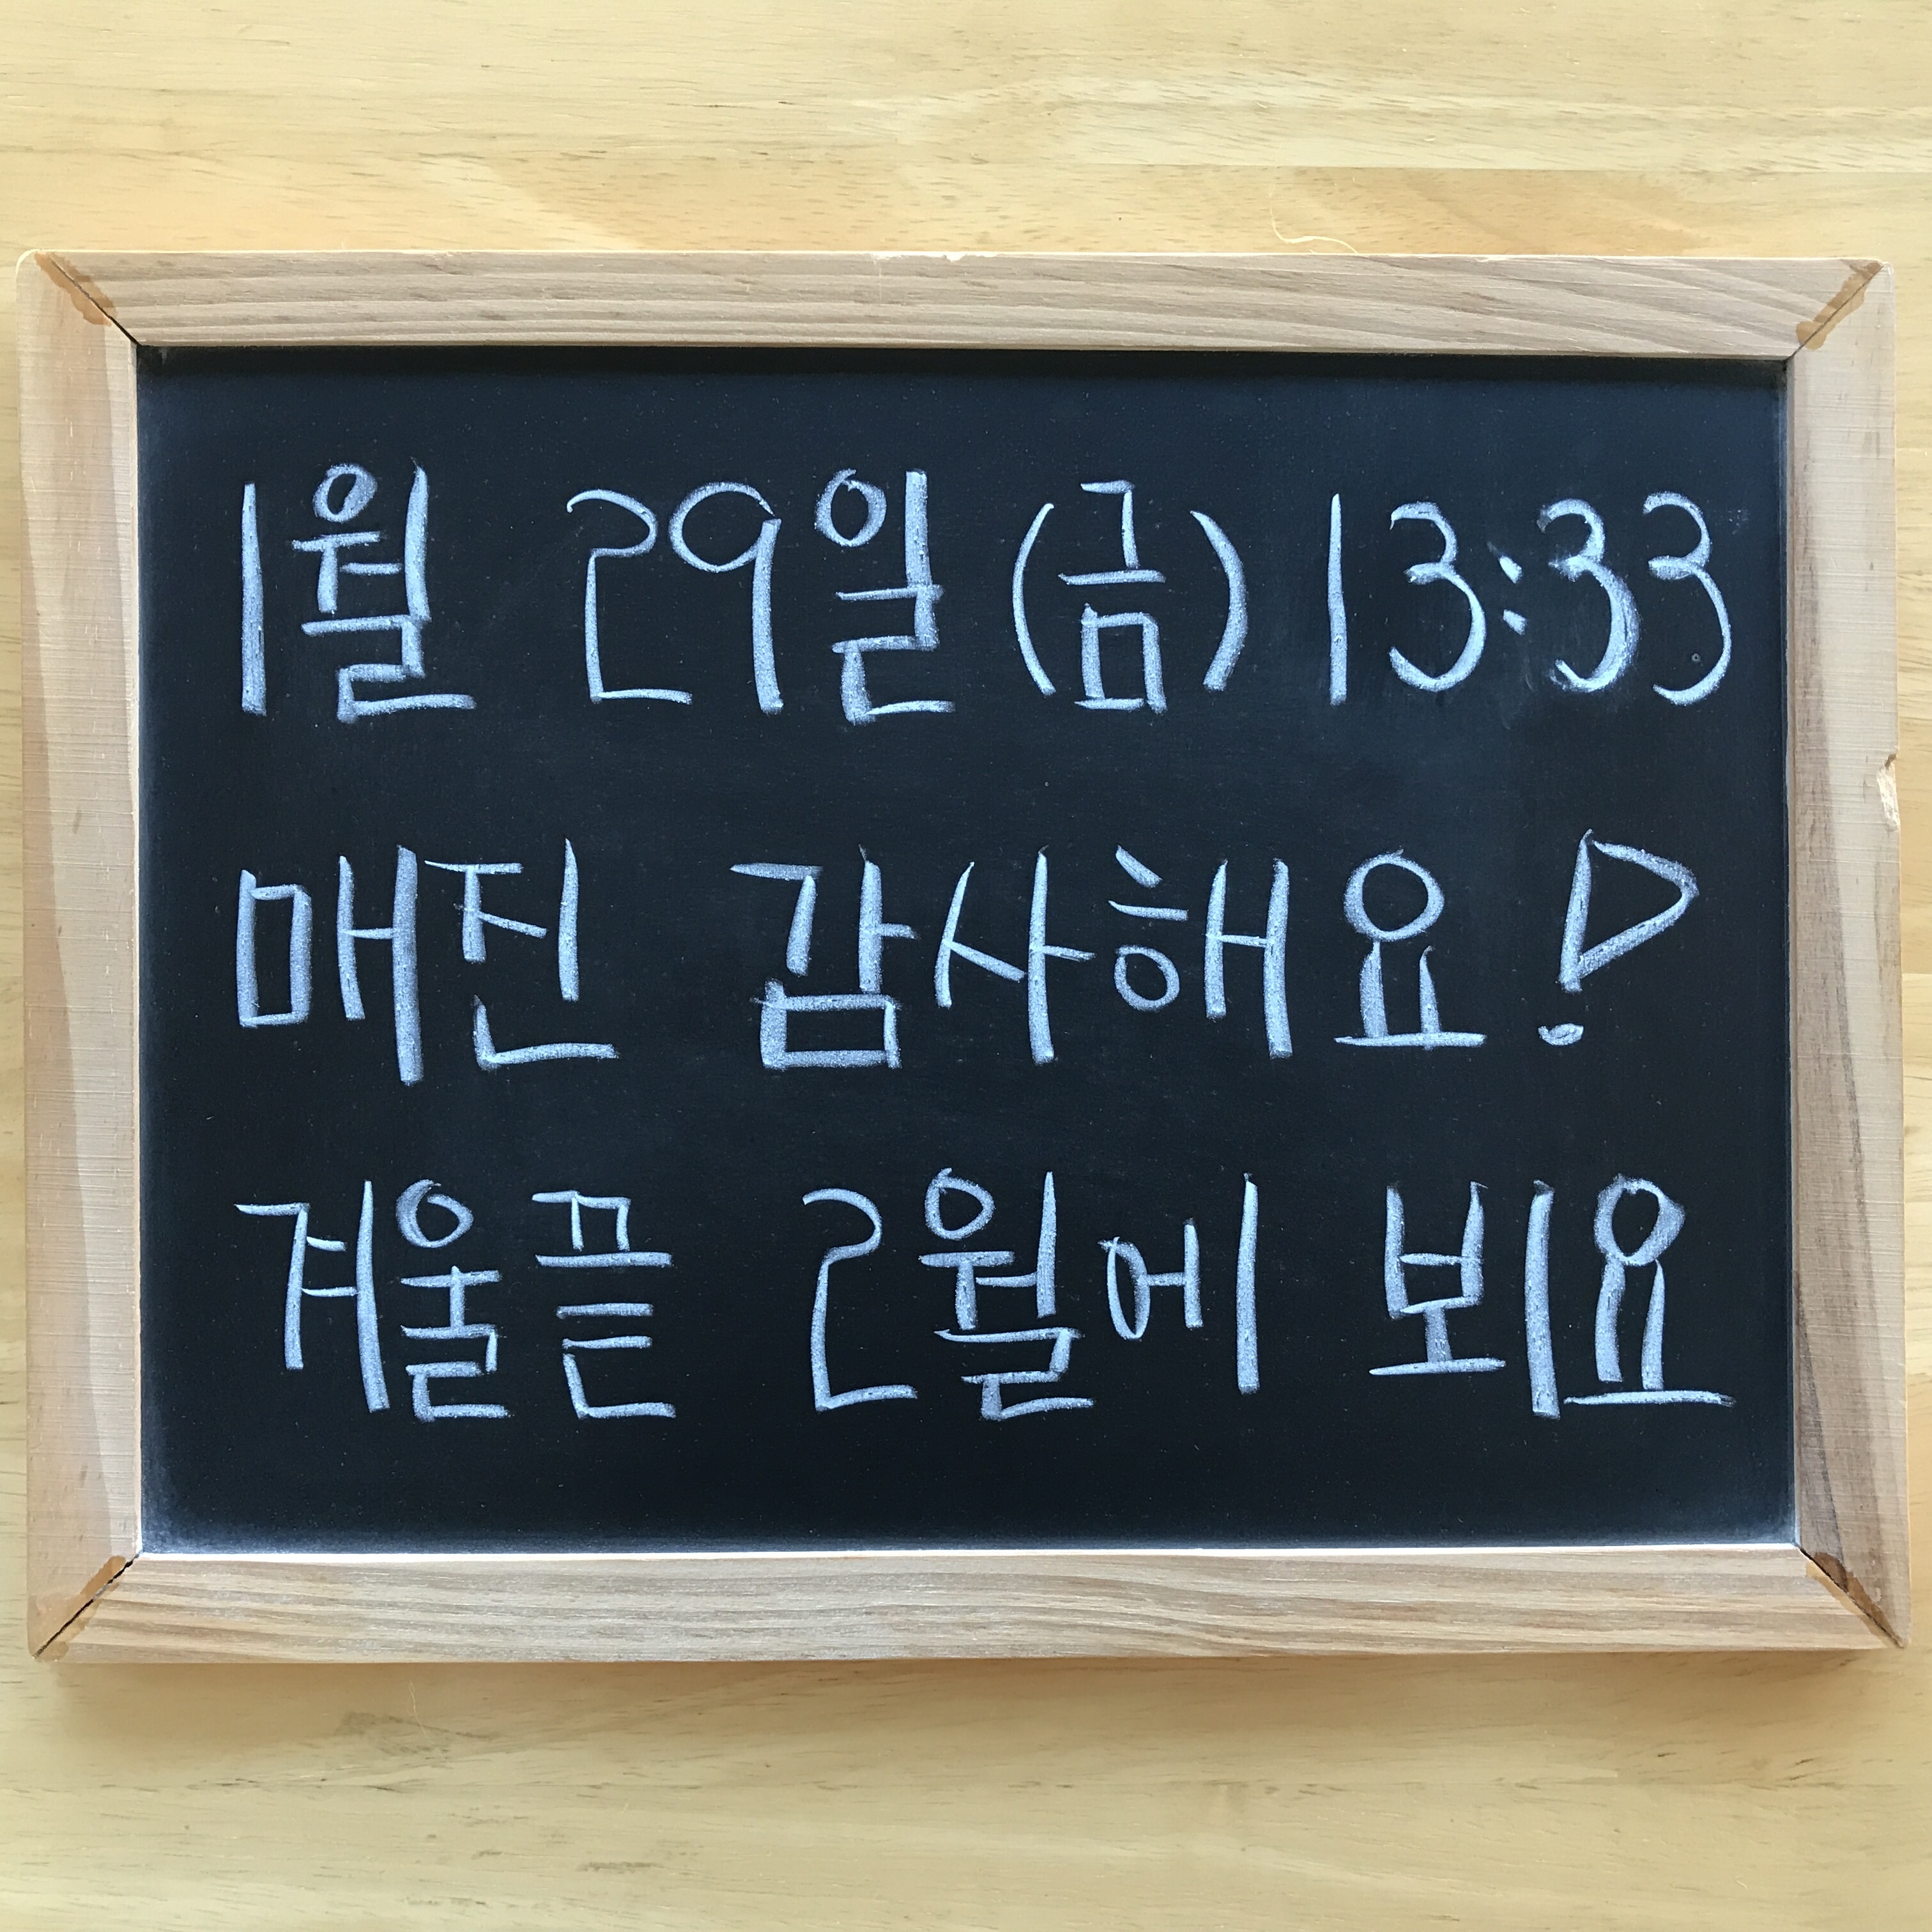 1월 29일(금) 13:33
매진 감사해요!
겨울끝 2월에 뵈요